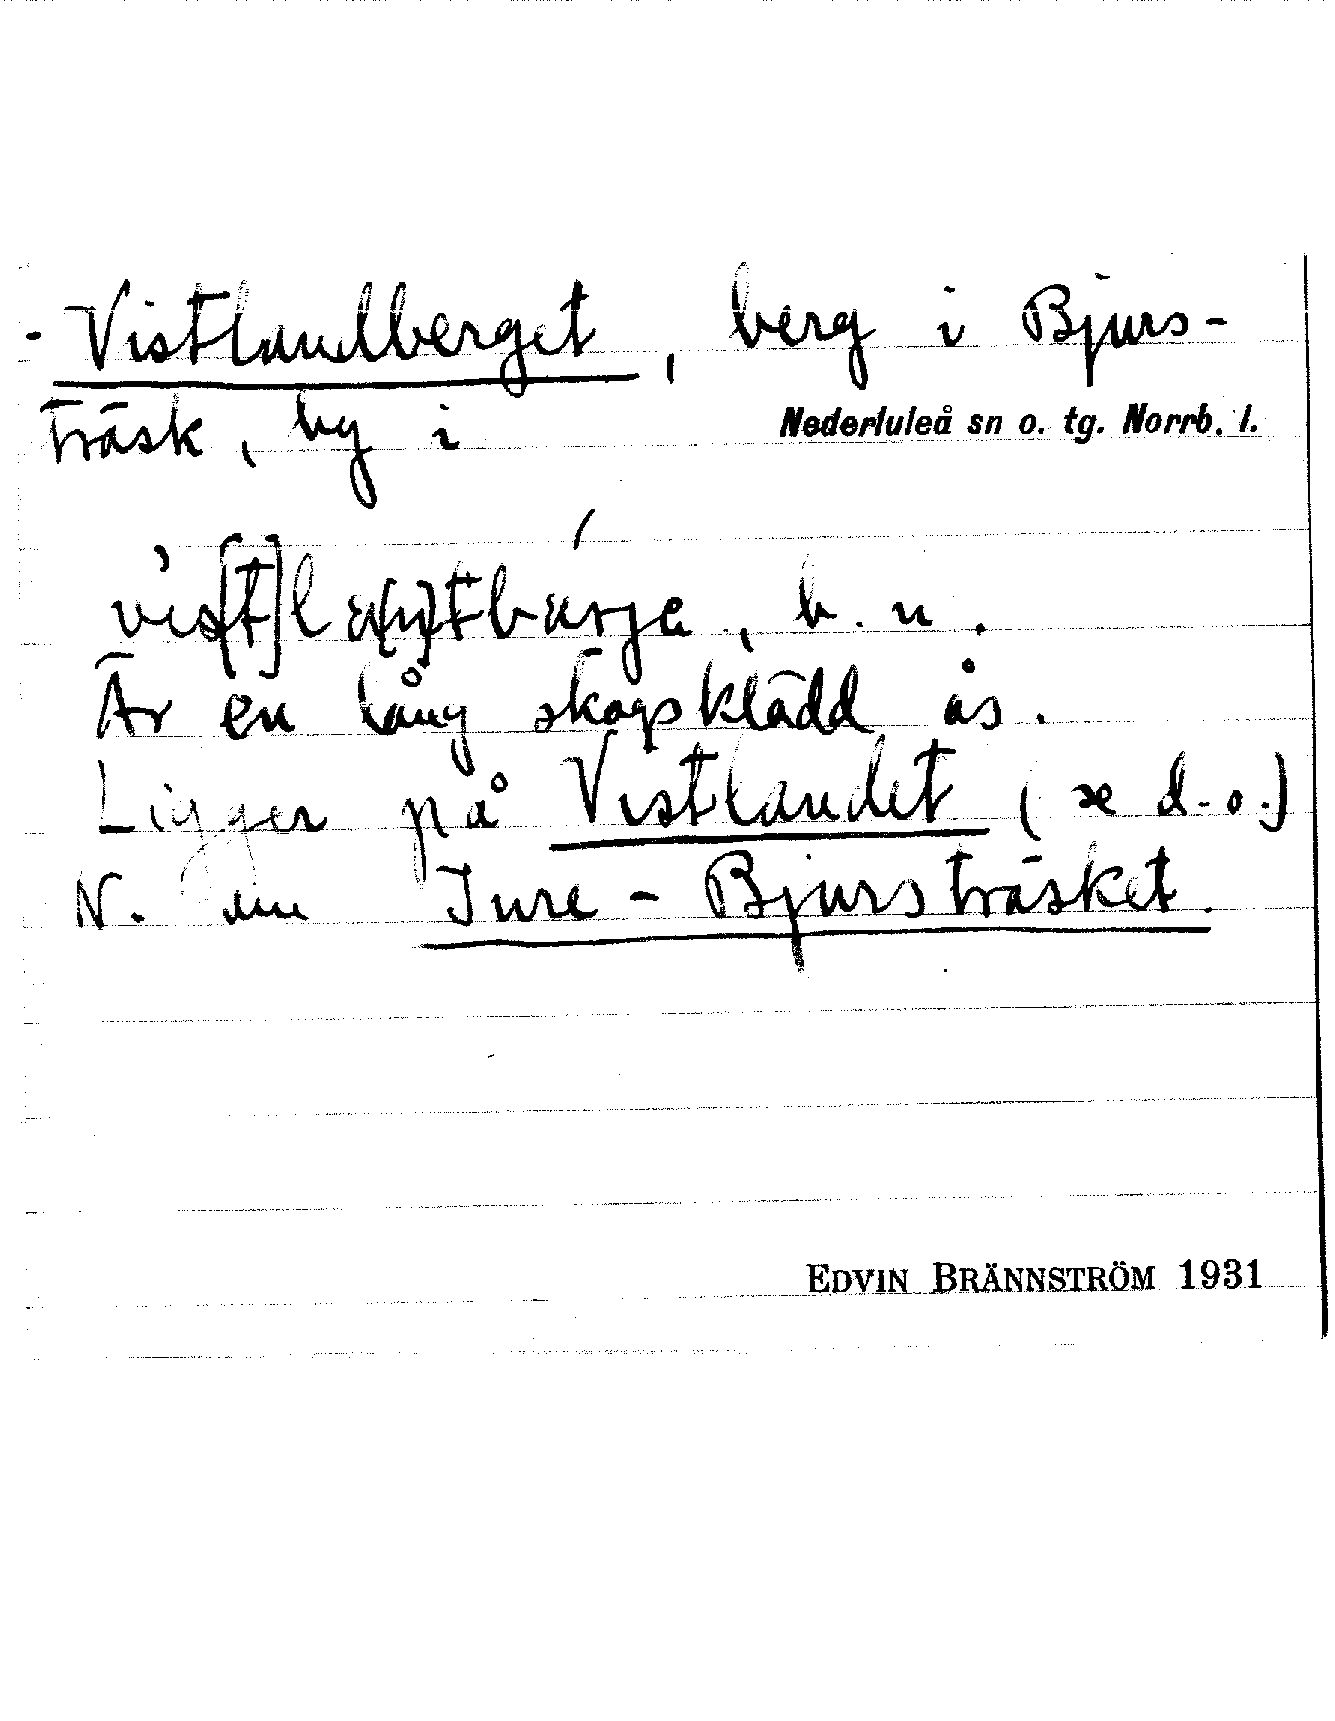 - Vistlandberget, berg i Bjurs-
träsk, by i Nederluleå sn o. tg. Norrb. l.
b. n.
Är en lång skogsklädd ås.
Ligger på Vistlandet (se d. o.)
N. om Inre - Bjursträsket.
EDVIN BRÄNNSTRÖM 1931